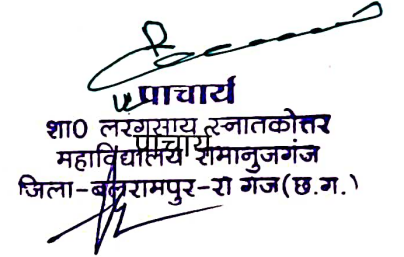 प्राचार्य
शा0 लरंगसाय स्नातकोत्तर
प्राचार्य
महाविद्यालय रामानुजगंज
जिला-बलरामपुर-रा गंज(छ.ग.)